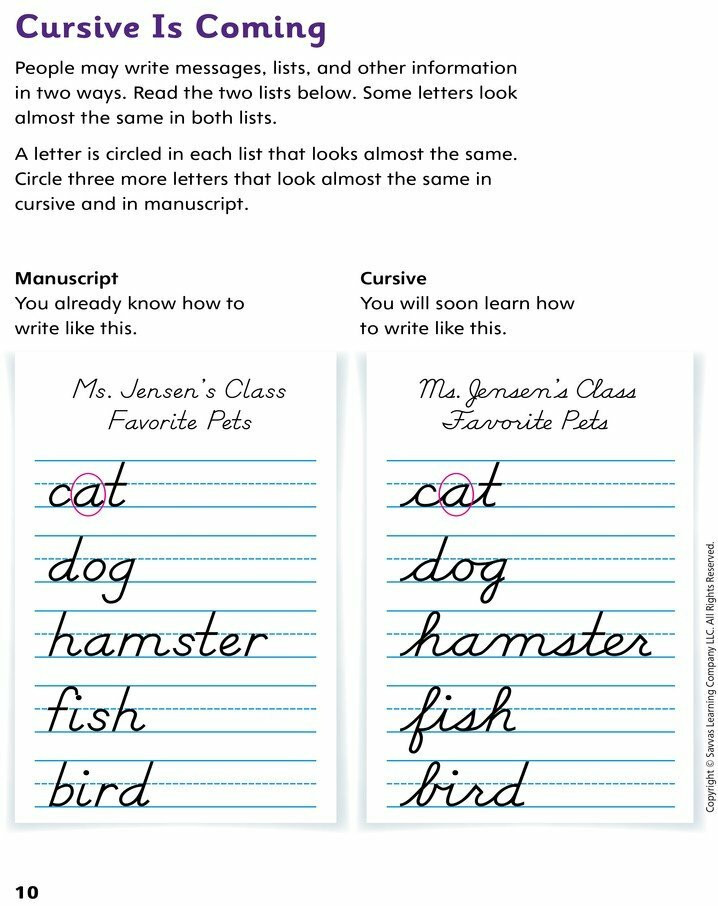 Cursive Is Coming
People may write messages, lists, and other information
in two ways. Read the two lists below. Some letters look
almost the same in both lists.
A letter is circled in each list that looks almost the same.
Circle three more letters that look almost the same in
cursive and in manuscript.
Manuscript
You already know how to
write like this.
Ms. Jensen's Class
Favorite Pets
cat
dog
hamster
fish
bird
Cursive
You will soon learn how
to write like this.
Ms. Jensen's Class
Favorite Pets
cat
dog
hamster
fish
bird
Copyright © Savvas Learning Company LLC. All Rights Reserved.
10